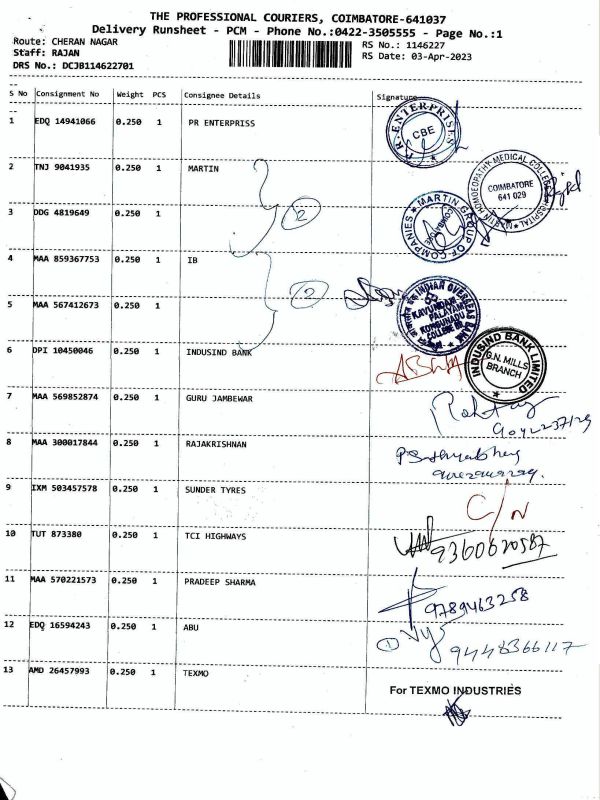 THE PROFESSIONAL COURIERS, COIMBATORE-641037
Delivery Runsheet - PCM - Phone No.:0422-3505555 - Page No.:1
Route: CHERAN NAGAR RS No.: 1146227
Staff: RAJAN RS Date: 03-Apr-2023
DRS No.: DCJB114622701
S No Consignment No Weight PCS Consignee Details Signature
1 EDQ 14941066 0.250 1 PR ENTERPRISS
P.R. ENTERPRISES
CBE
2 TNJ 9041935 0.250 1 MARTIN
MARTIN HOMOEOPATHIC MEDICAL COLLEGE HOSPITAL
COIMBATORE
641 029
3 DDG 4819649 0.250 1
2
MARTIN GROUP OF COMPANIES
COIMBATORE
4 MAA 859367753 0.250 1 IB
2
INDIAN OVERSEAS BANK
KAVUNDAMPALAYAM
KONGUNADU
COLLEGE
5 MAA 567412673 0.250 1
6 DPI 10450046 0.250 1 INDUSIND BANK
INDUSIND BANK LIMITED
G.N. MILLS
BRANCH
7 MAA 569852874 0.250 1 GURU JAMBEWAR
8 MAA 300017844 0.250 1 RAJAKRISHNAN
9 IXM 503457578 0.250 1 SUNDER TYRES
C/N
10 TUT 873380 0.250 1 TCI HIGHWAYS
9360620587
11 MAA 570221573 0.250 1 PRADEEP SHARMA
9789463258
12 EDQ 16594243 0.250 1 ABU
1
9448366117
13 AMD 26457993 0.250 1 TEXMO
For TEXMO INDUSTRIES